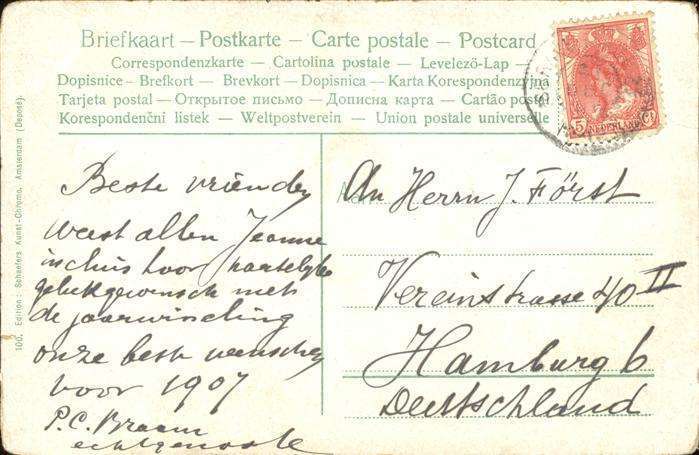 Briefkaart — Postkarte — Carte postale — Postcard
Correspondenzkarte — Cartolina postale — Levelező-Lap —
Dopisnice — Brefkort — Brevkort — Dopisnica — Karta Korespondenzyjna
Tarjeta postal — Открытое письмо — Дописна карта — Cartão postal
Korespondenční listek — Weltpostverein — Union postale universelle
5 NEDERLAND Ct
100. Edition: Schaefers Kunst-Chromo, Amsterdam (Deposé).
Beste vrienden
weest allen Jeanne
hartelijke
gelukgewensch met
de jaarwisseling
onze beste wenschen
voor 1907
P.C. Braam
echtgenoote
An Herrn J. Först
Vereinstrasse 40 II
Hamburg 6
Deutschland